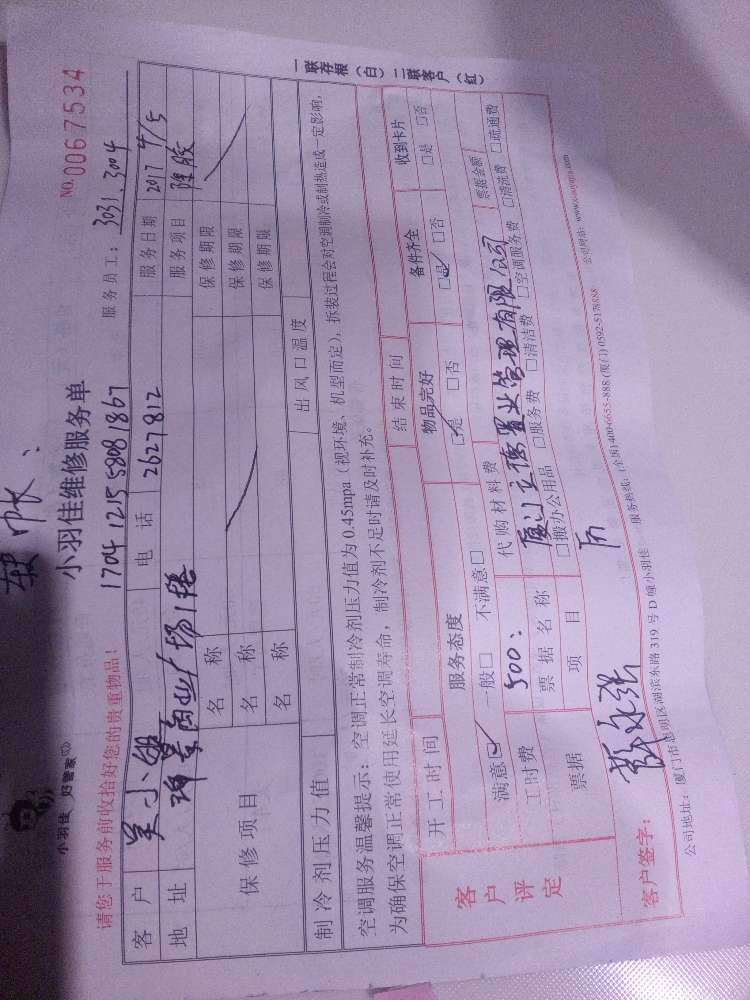 转帐、
小羽佳 好管家
小羽佳维修服务单
NO.0067534
17041215580 81867
请您于服务前收拾好您的贵重物品！
服务员工：3031、3004
客户 吴小姐 电话 2627812 服务日期 2017 4/5
地址 珊景商业广场1楼 服务项目
保修项目
名称 保修期限
名称 保修期限
名称 保修期限
制冷剂压力值 出风口温度
空调服务温馨提示：空调正常制冷剂压力值为 0.45mpa（视环境、机型而定），拆装过程会对空调制冷或制热造成一定影响，
为确保空调正常使用延长空调寿命，制冷剂不足时请及时补充。
客户评定
开工时间 结束时间
服务态度 物品完好 备件齐全 收到卡片
满意☑ 一般□ 不满意□ ☑是 □否 ☑是 □否 □是 □否
工时费 500： 代购材料费 票据金额
票据 票据名称 厦门立德置业管理有限公司
项目 □搬办公用品 □服务费 □清洁费 □空调服务费 □清洗费 □疏通费
客户签字：
公司地址：厦门市思明区湖滨东路 319 号 D 幢小羽佳 服务热线：(全国)400-6655-888 (厦门) 0592-5178588 公司网址：www.xiaoyujia.com
一联存根（白）二联客户（红）